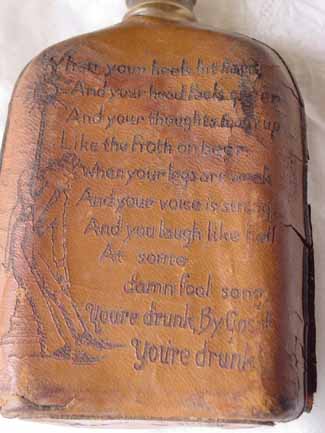 When your heels hit hard,
And your head feels queer
And your thoughts foam up
Like the froth on beer
When your legs are weak
And your voice is strong
And you laugh like hell
At some
damn fool song
You're drunk, By Gosh
You're drunk